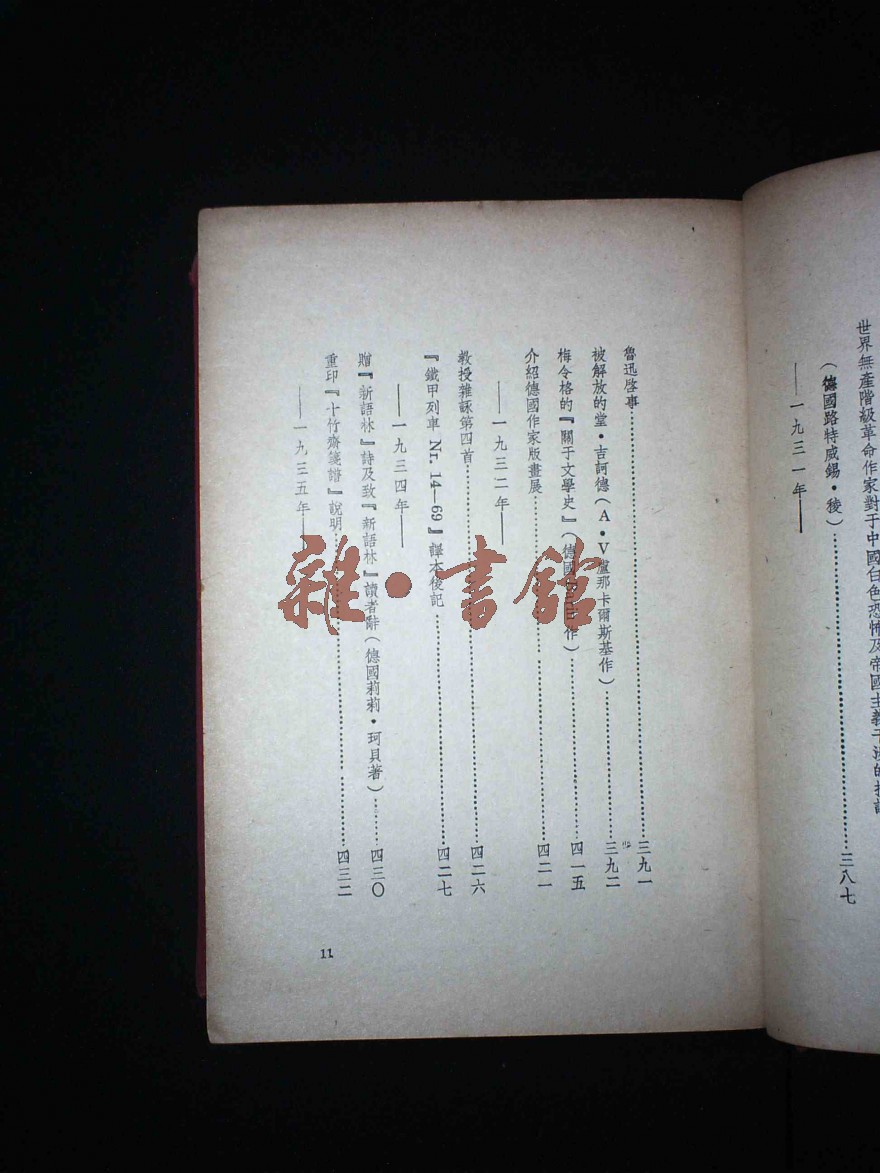 世界無產階級革命作家對于中國白色恐怖及帝國主義干涉的抗議
（德國路特威錫·稜）……三八七
——一九三一年——
魯迅啓事……三九一
被解放的堂·吉訶德（A·V盧那卡爾斯基作）……三九二
梅令格的『關于文學史』（德國 作）……四一五
介紹德國作家版畫展……四二一
——一九三二年——
教授雜詠第四首……四二六
『鐵甲列車 Nr. 14—69』譯本後記……四二七
——一九三四年——
贈『新語林』詩及致『新語林』讀者辭（德國莉莉·珂貝著）……四三〇
重印『十竹齋箋譜』說明……四三二
——一九三五年——
11
雜·書館